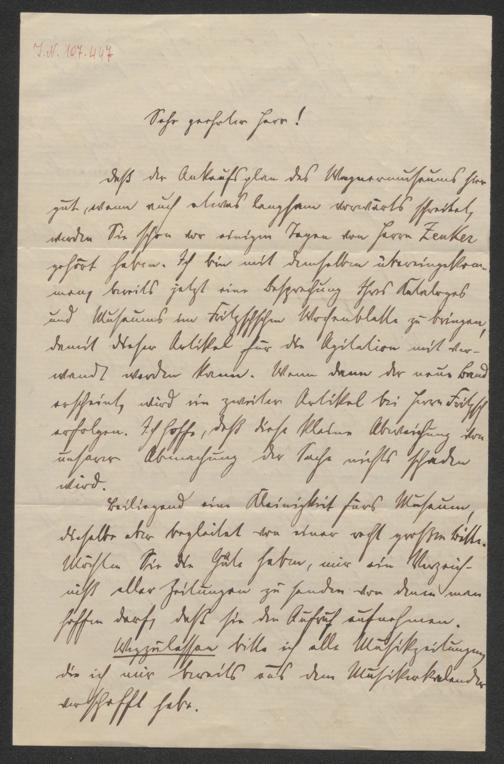 J.N. 107.447
Sehr geehrter Herr!
Daß der Ankaufsplan des Wagnermuseums hier
gut, wenn auch etwas langsam vorwärts schreitet,
werden Sie schon vor einigen Tagen von Herrn Zenker
gehört haben. Ich bin mit demselben übereingekom-
men, bereits jetzt eine Besprechung Ihres Kataloges
und Museums im Fritzschschen Wochenblatte zu bringen,
damit dieser Artikel für die Agitation mit ver-
wandt werden kann. Wenn dann der neue Band
erscheint, wird ein zweiter Artikel bei Herrn Fritzsch
erfolgen. Ich hoffe, daß diese kleine Abweichung von
unserer Abmachung der Sache nichts schaden
wird.
Beiliegend eine Kleinigkeit fürs Museum,
dieselbe aber begleitet von einer recht großen Bitte.
Möchten Sie die Güte haben, mir ein Verzeich-
niß aller Zeitungen zu senden von denen man
hoffen darf, daß sie den Aufruf aufnehmen.
Wegzulassen bitte ich alle Musikzeitungen,
die ich mir bereits aus dem Musikerkalender
verschafft habe.